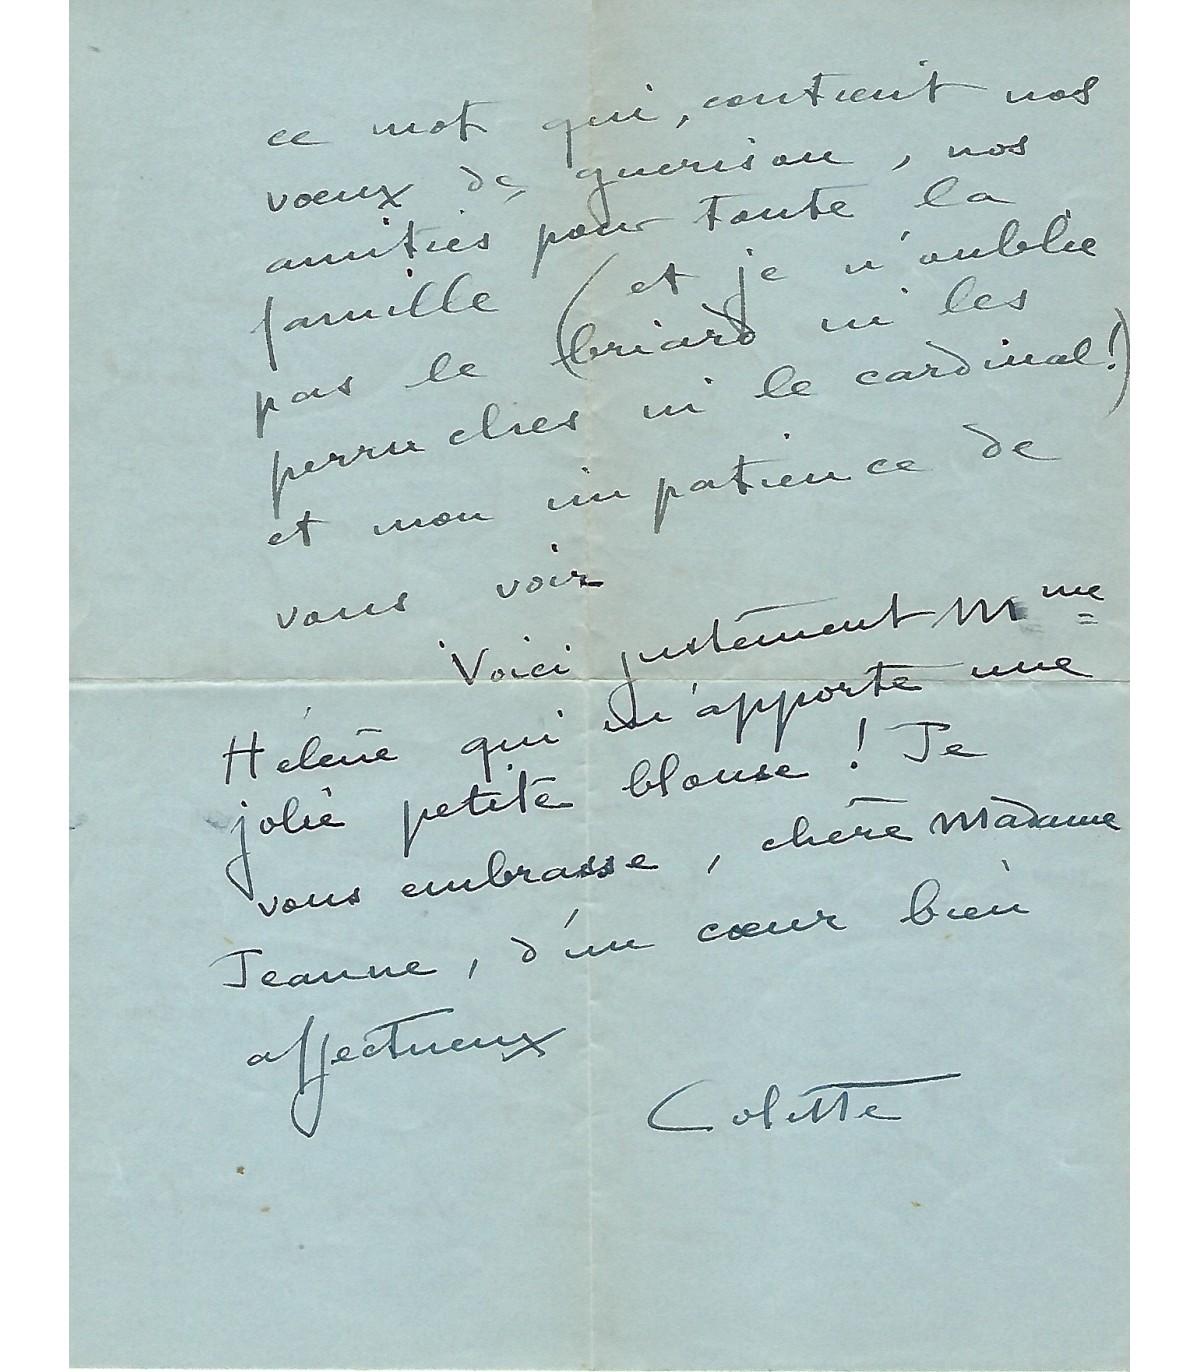 ce mot qui, contient nos
vœux de guérison, nos
amitiés pour toute la
famille (et je n'oublie
pas le briard ni les
perruches ni le cardinal!)
et mon impatience de
vous voir
Voici justement Mme
Hélène qui m'apporte une
jolie petite blouse ! Je
vous embrasse, chère Madame
Jeanne, d'un cœur bien
affectueux
Colette